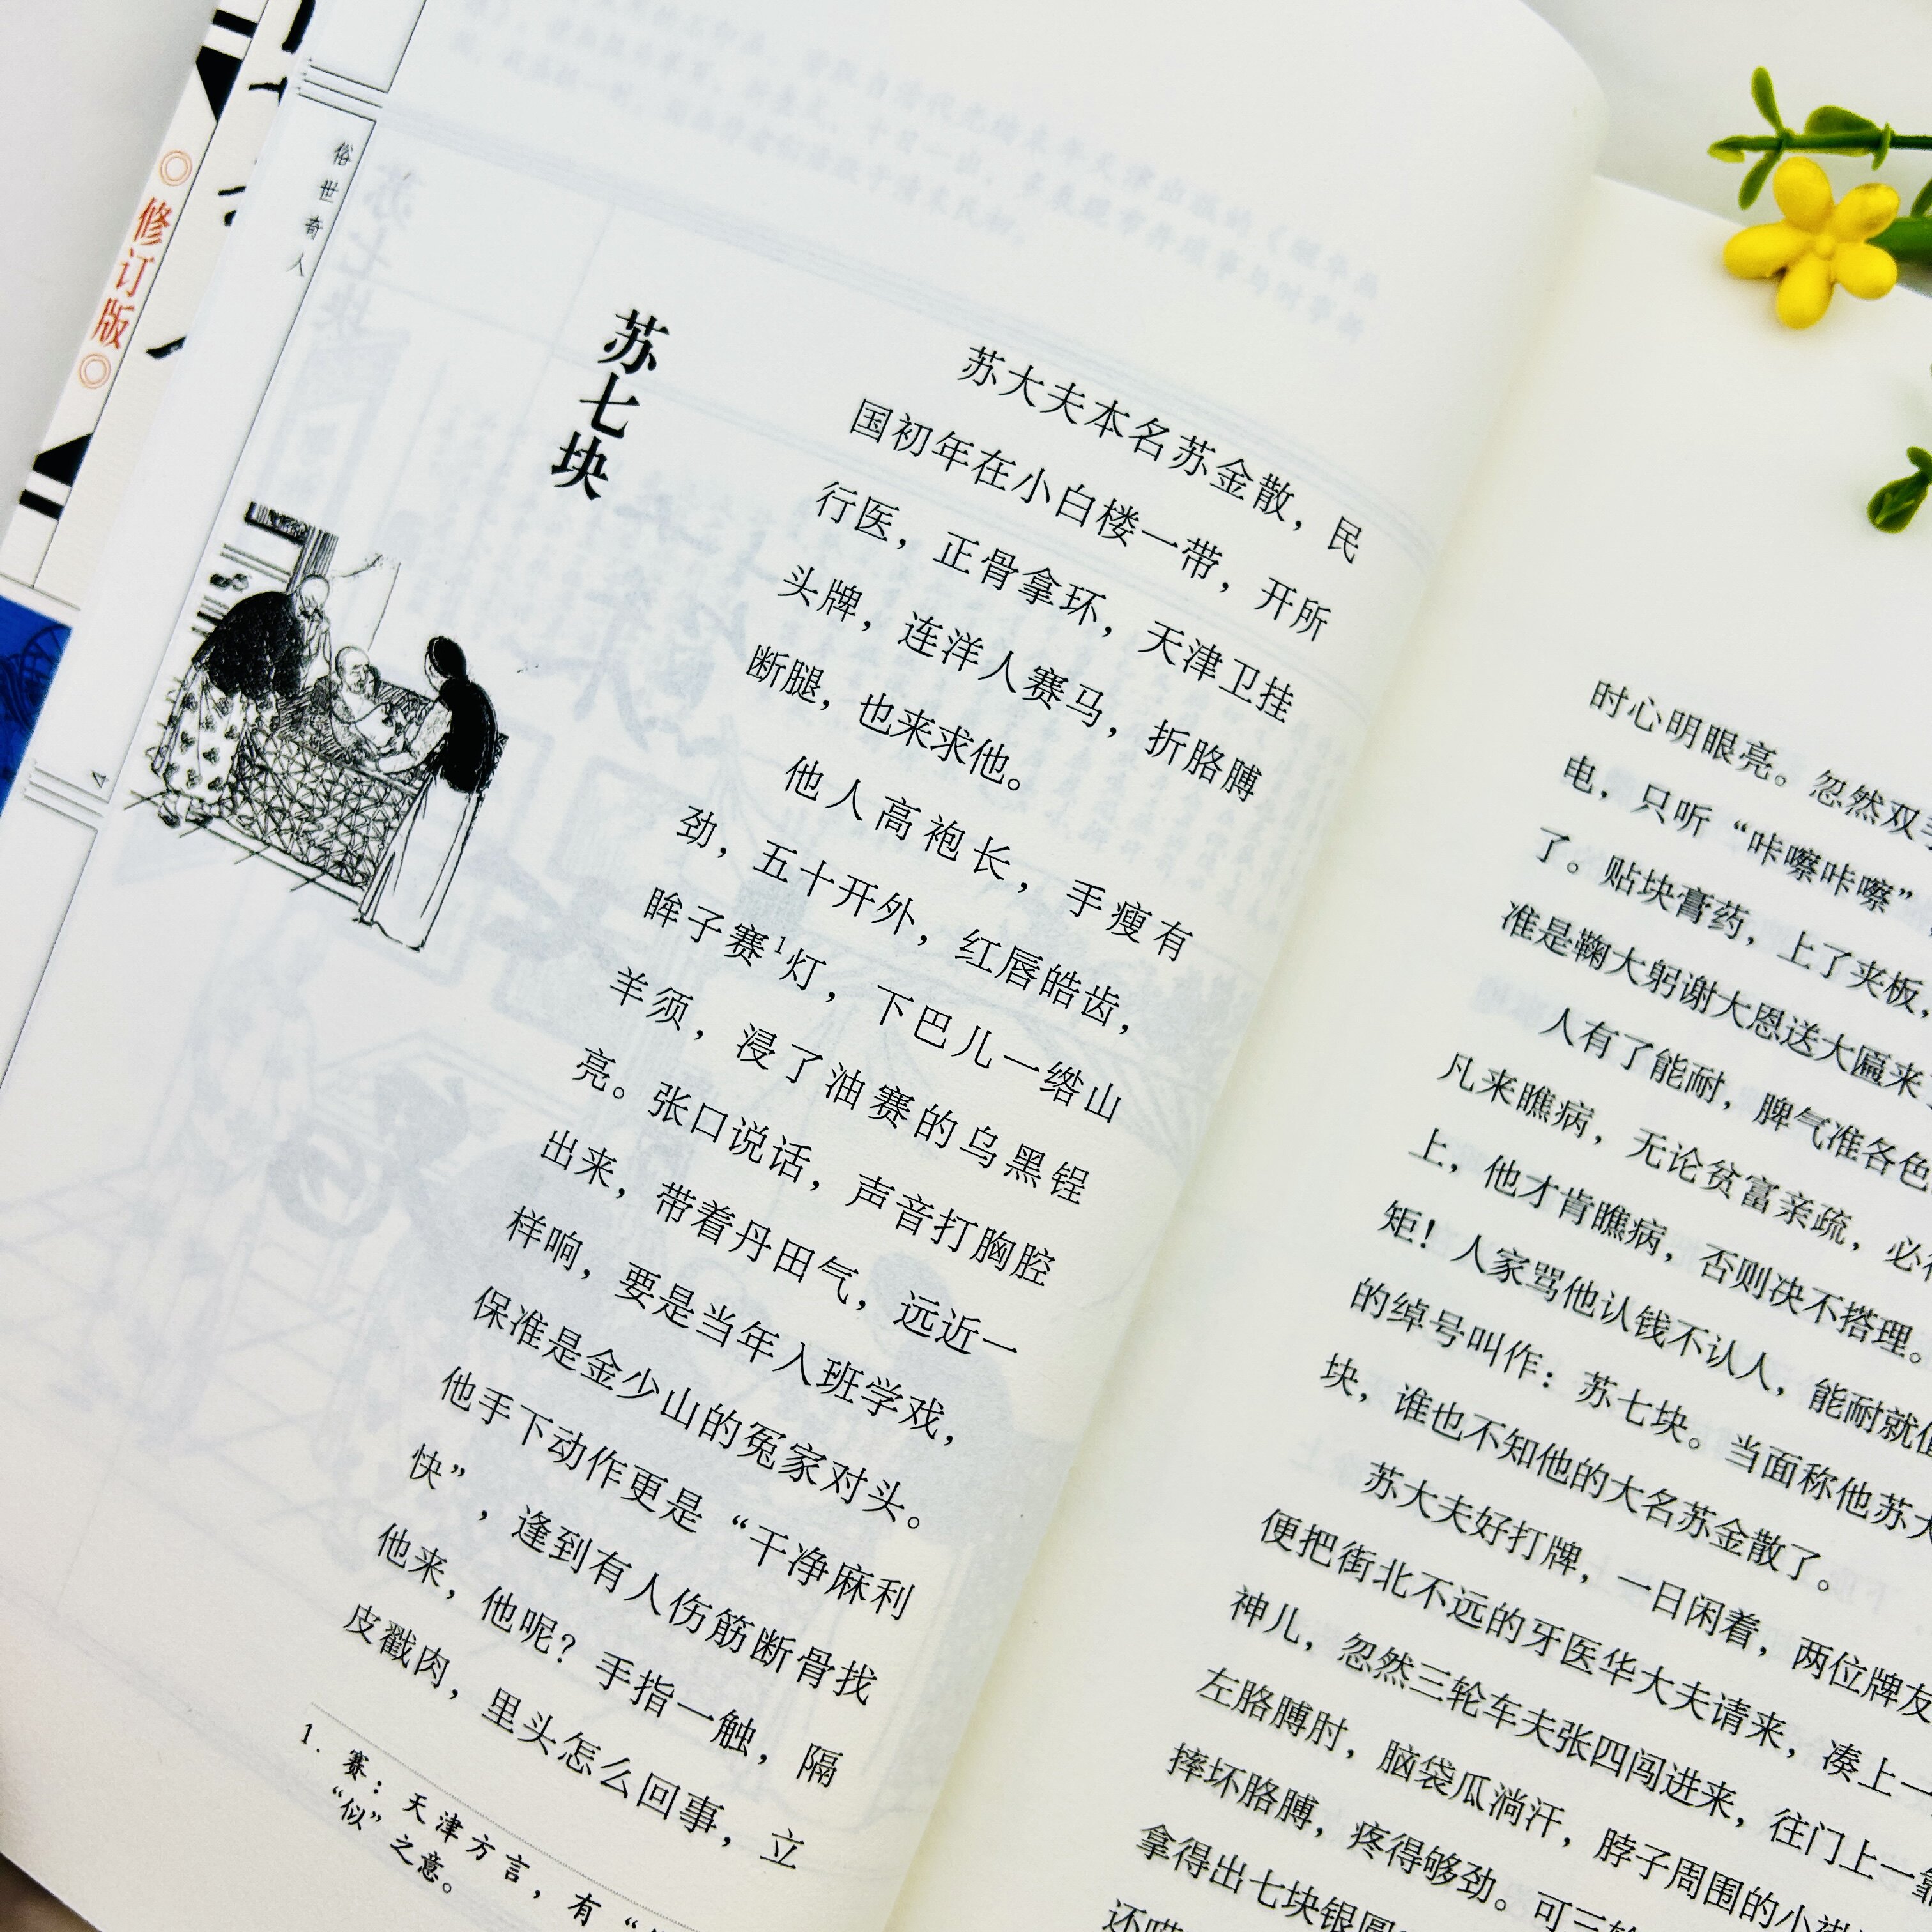 ◎修订版◎
俗世奇人
4
苏七块
苏大夫本名苏金散，民
国初年在小白楼一带，开所
行医，正骨拿环，天津卫挂
头牌，连洋人赛马，折胳膊
断腿，也来求他。
他人高袍长，手瘦有
劲，五十开外，红唇皓齿，
眸子赛1灯，下巴儿一绺山
羊须，浸了油赛的乌黑锃
亮。张口说话，声音打胸腔
出来，带着丹田气，远近一
样响，要是当年入班学戏，
保准是金少山的冤家对头。
他手下动作更是“干净麻利
快”，逢到有人伤筋断骨找
他来，他呢？手指一触，隔
皮戳肉，里头怎么回事，立
1. 赛：天津方言，有“
“似”之意。
时心明眼亮。忽然双手
电，只听“咔嚓咔嚓”，
了。贴块膏药，上了夹板，
准是鞠大躬谢大恩送大匾来
人有了能耐，脾气准各色
凡来瞧病，无论贫富亲疏，必
上，他才肯瞧病，否则决不搭理。
矩！人家骂他认钱不认人，能耐就值
的绰号叫作：苏七块。当面称他苏大
块，谁也不知他的大名苏金散了。
苏大夫好打牌，一日闲着，两位牌友
便把街北不远的牙医华大夫请来，凑上一
神儿，忽然三轮车夫张四闯进来，往门上一靠
左胳膊肘，脑袋瓜淌汗，脖子周围的小褂
摔坏胳膊，疼得够劲。可三轮
拿得出七块银圆
还